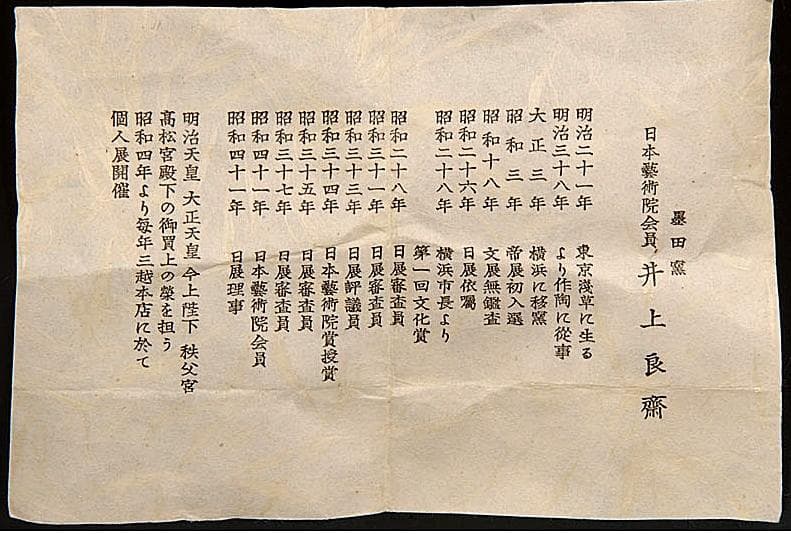 墨田窯
日本藝術院会員 井上良齋
明治二十一年 東京淺草に生る
明治三十八年 より作陶に從事
大正三年 横浜に移窯
昭和三年 帝展初入選
昭和十八年 文展無鑑査
昭和二十六年 日展依囑
昭和二十八年 横浜市長より
第一回文化賞
昭和二十八年 日展審査員
昭和三十一年 日展審査員
昭和三十三年 日展評議員
昭和三十四年 日本藝術院賞授賞
昭和三十五年 日展審査員
昭和三十七年 日展審査員
昭和四十一年 日本藝術院会員
昭和四十一年 日展理事
明治天皇 大正天皇 今上陛下 秩父宮
高松宮殿下の御買上の榮を担う
昭和四年より毎年三越本店に於て
個人展開催